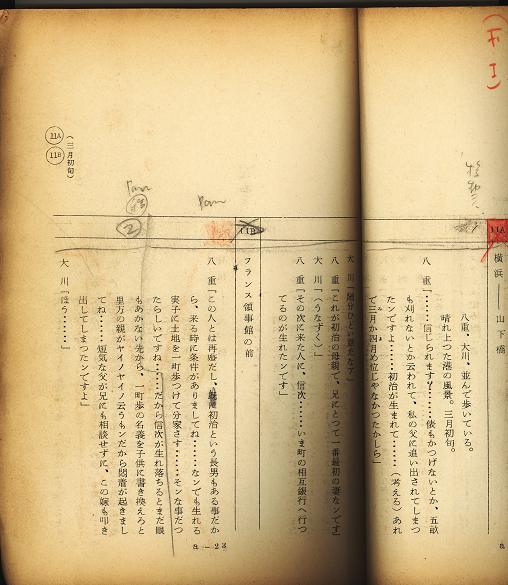 (下 I)
11A
横浜——山下橋
八重、大川、並んで歩いている。
晴れ上つた港の風景。三月初旬。
八 重「……信じられます?……俵もかつげないとか、五畝
も刈れないとか云われて、私の父に追い出されてしまつ
たンですよ……初治が生まれて……(考える)あれ
で三月か四月め位じやなかつたかしら」
大 川「随分ひどい話だなア」
八 重「これが初治の母親で、兄にとつて一番最初の妻なンです」
大 川「(うなずく)」
八 重「その次に来た人に、信次……いま町の相互銀行へ行つ
てるのが生れたンです」
11B
フランス領事館の前
八 重「この人とは再婚だし、既に初治という長男もある事だか
ら、来る時に条件がありましてね……なンでも生れる
実子に土地を一町歩つけて分家さす……そンな事だつ
たらしいですね……だから信次が生れ落ちるとまだ眼
もあかない先から、一町歩の名義を子供に書き換えろと
里方の親がヤイノヤイノ云うもンだから悶着が起きまし
てね……短気な父が兄にも相談せずに、この嫁も叩き
出してしまつたンですよ」
大 川「ほう……」
Pan
Pan
2
(三月初旬)
11A
11B
a—23
a